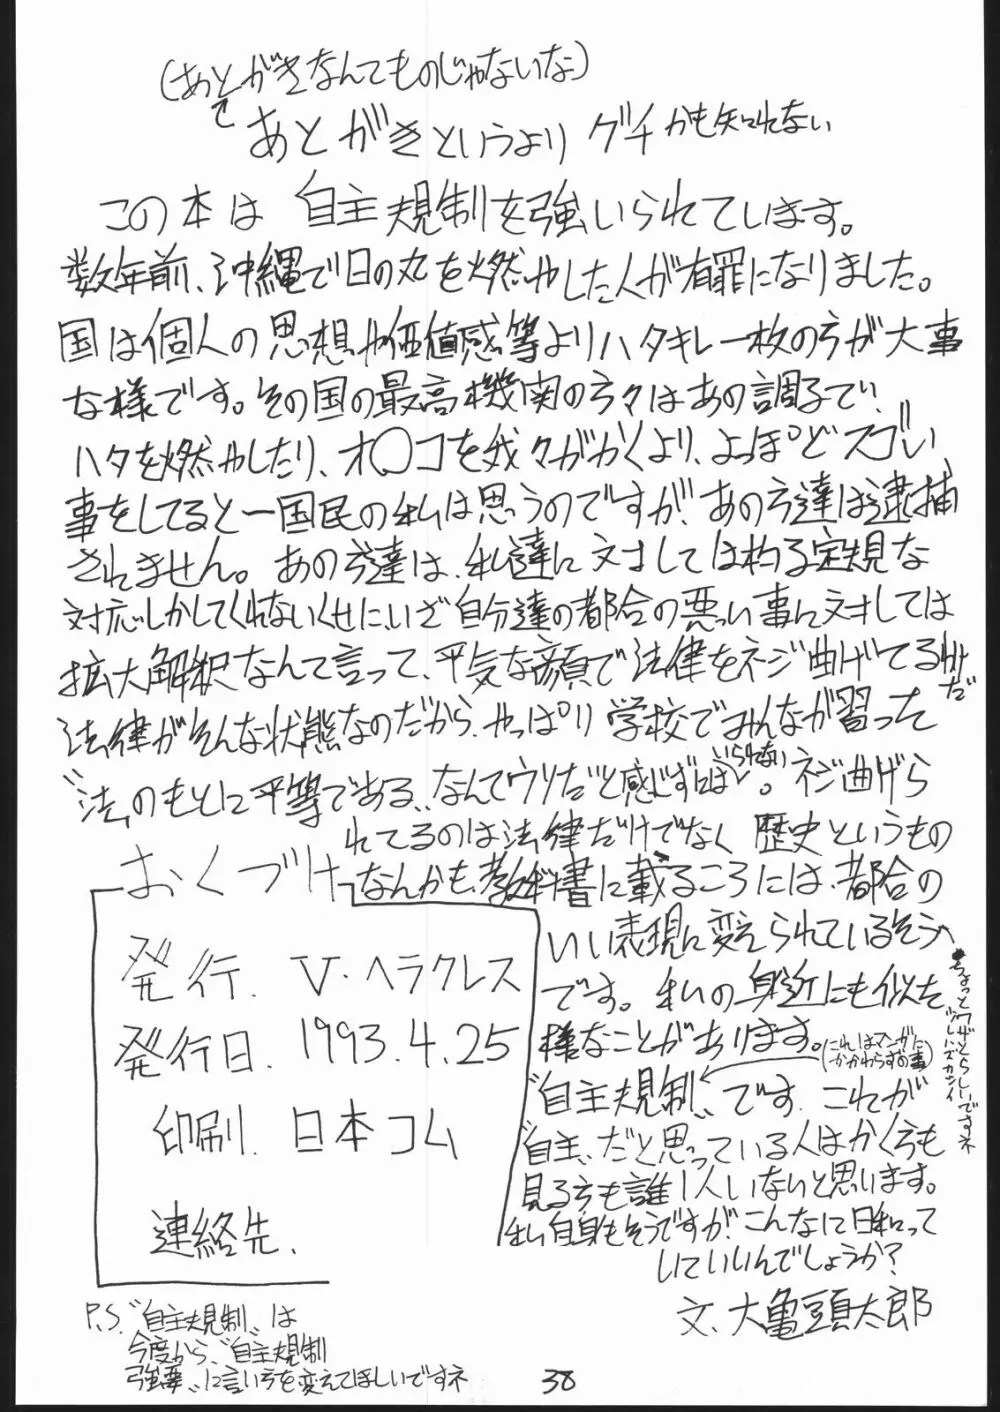 (あとがきなんてものじゃないな)
あとがきというよりグチかも知れない
この本は自主規制を強いられています。
数年前、沖縄で日の丸を燃やした人が有罪になりました。
国は個人の思想や価値感等よりハタキレ一枚の方が大事
な様です。その国の最高機関の方々はあの調子で、
ハタを燃やしたり、オ〇コを我々がかくより、よっぽどスゴい
事をしてると一国民の私は思うのですが、あの方達は逮捕
されません。あの方達は、私達に対しては杓子定規な
対応しかしてくれないくせに、いざ自分達の都合の悪い事に対しては
拡大解釈なんて言って、平気な顔で法律をネジ曲げてるわけだ
法律がそんな状態なのだから、やっぱり学校でみんなが習った
"法のもとに平等である"なんてウソだと感じずにはいられない。ネジ曲げら
れてるのは法律だけでなく歴史というもの
なんかも、教科書に載るころには、都合の
いい表現に変えられているそう
です。私の身近にも似た
様なことがあります。
(これはマンガにかかわらずの事)
"自主規制"です。これが
"自主"だと思っている人はかく方も
見る方も誰1人いないと思います。
私自身もそうですが、こんなに日和って
いていいんでしょうか?
文、大亀頭太郎
ちょっとワザとらしいですネ
おくづけ
発行. V・ヘラクレス
発行日. 1993.4.25
印刷. 日本コム
連絡先.
P.S. "自主規制"は
今度から、"自主規制
強要"に言い方を変えてほしいですネ
38